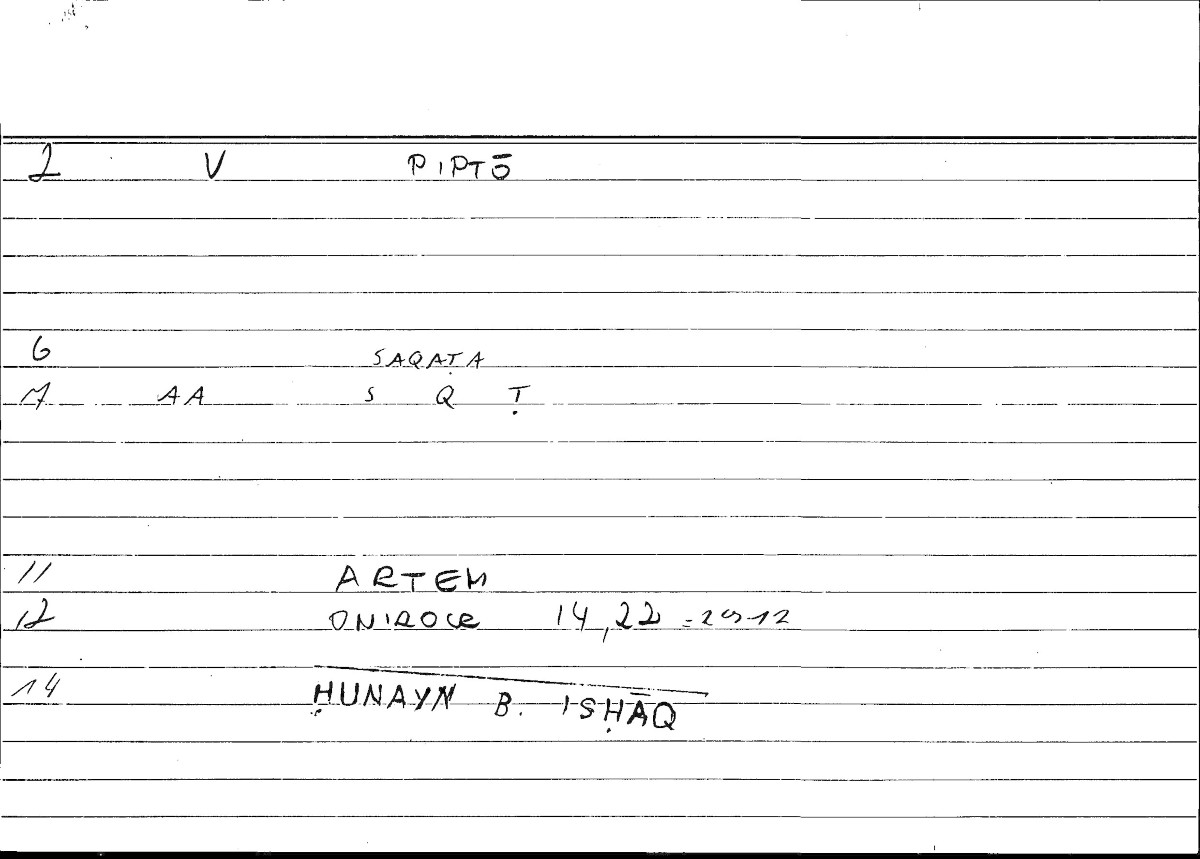 2 V PIPTŌ
6 SAQAṬA
7 AA S Q Ṭ
11 ARTEM
12 ONIROCR 14,22 = 29-12
14 ḤUNAYN B. ISḤĀQ